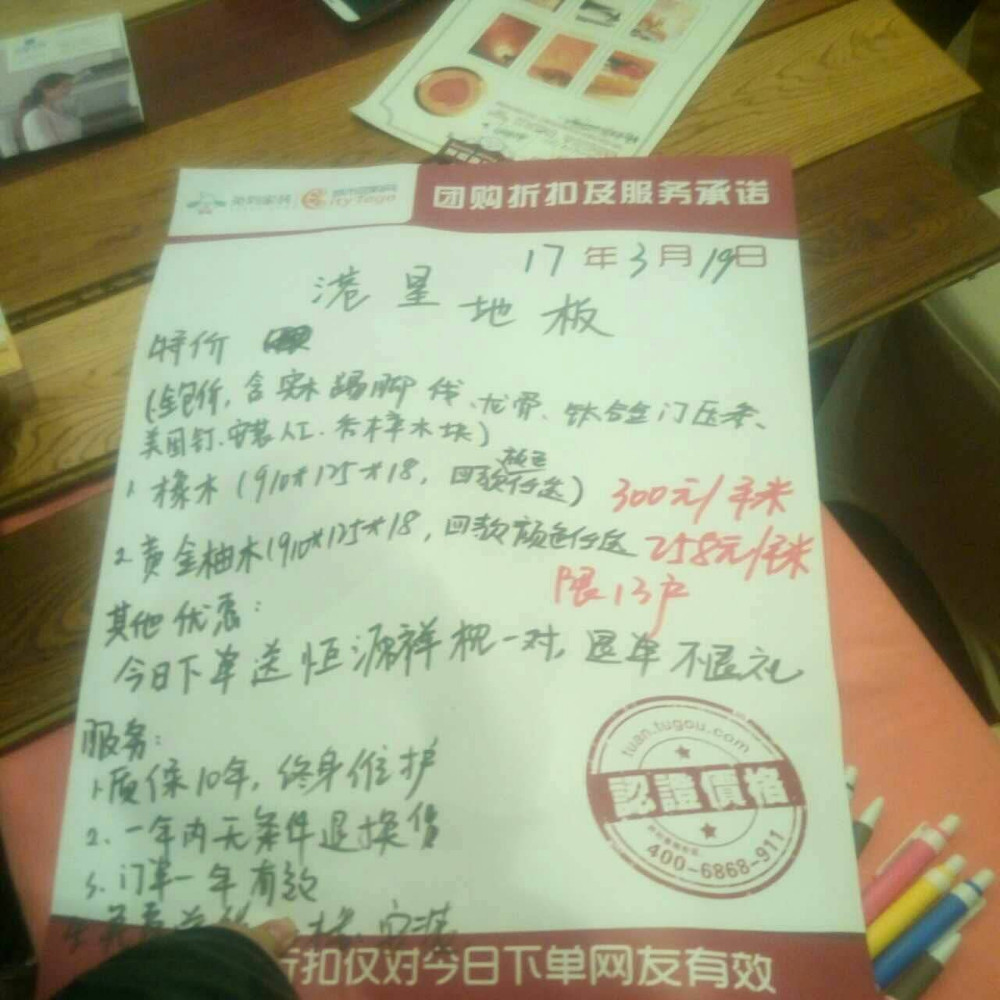 团购折扣及服务承诺
17年3月19日
港星地板
特价
(全包价,含实木踢脚线、龙骨、钛合金门压条、
美固钉、安装人工、香樟木块)
1. 橡木(910*125*18,四款颜色任选) 300元/平米
2. 黄金柚木(910*125*18,四款颜色任选 258元/平米
限13户
其他优惠:
今日下单送恒源祥枕一对,退单不退礼
服务:
1. 质保10年,终身维护
2. 一年内无条件退换货
3. 订单一年有效
安装
tuan.tugou.com
認證價格
400-6868-911
折扣仅对今日下单网友有效